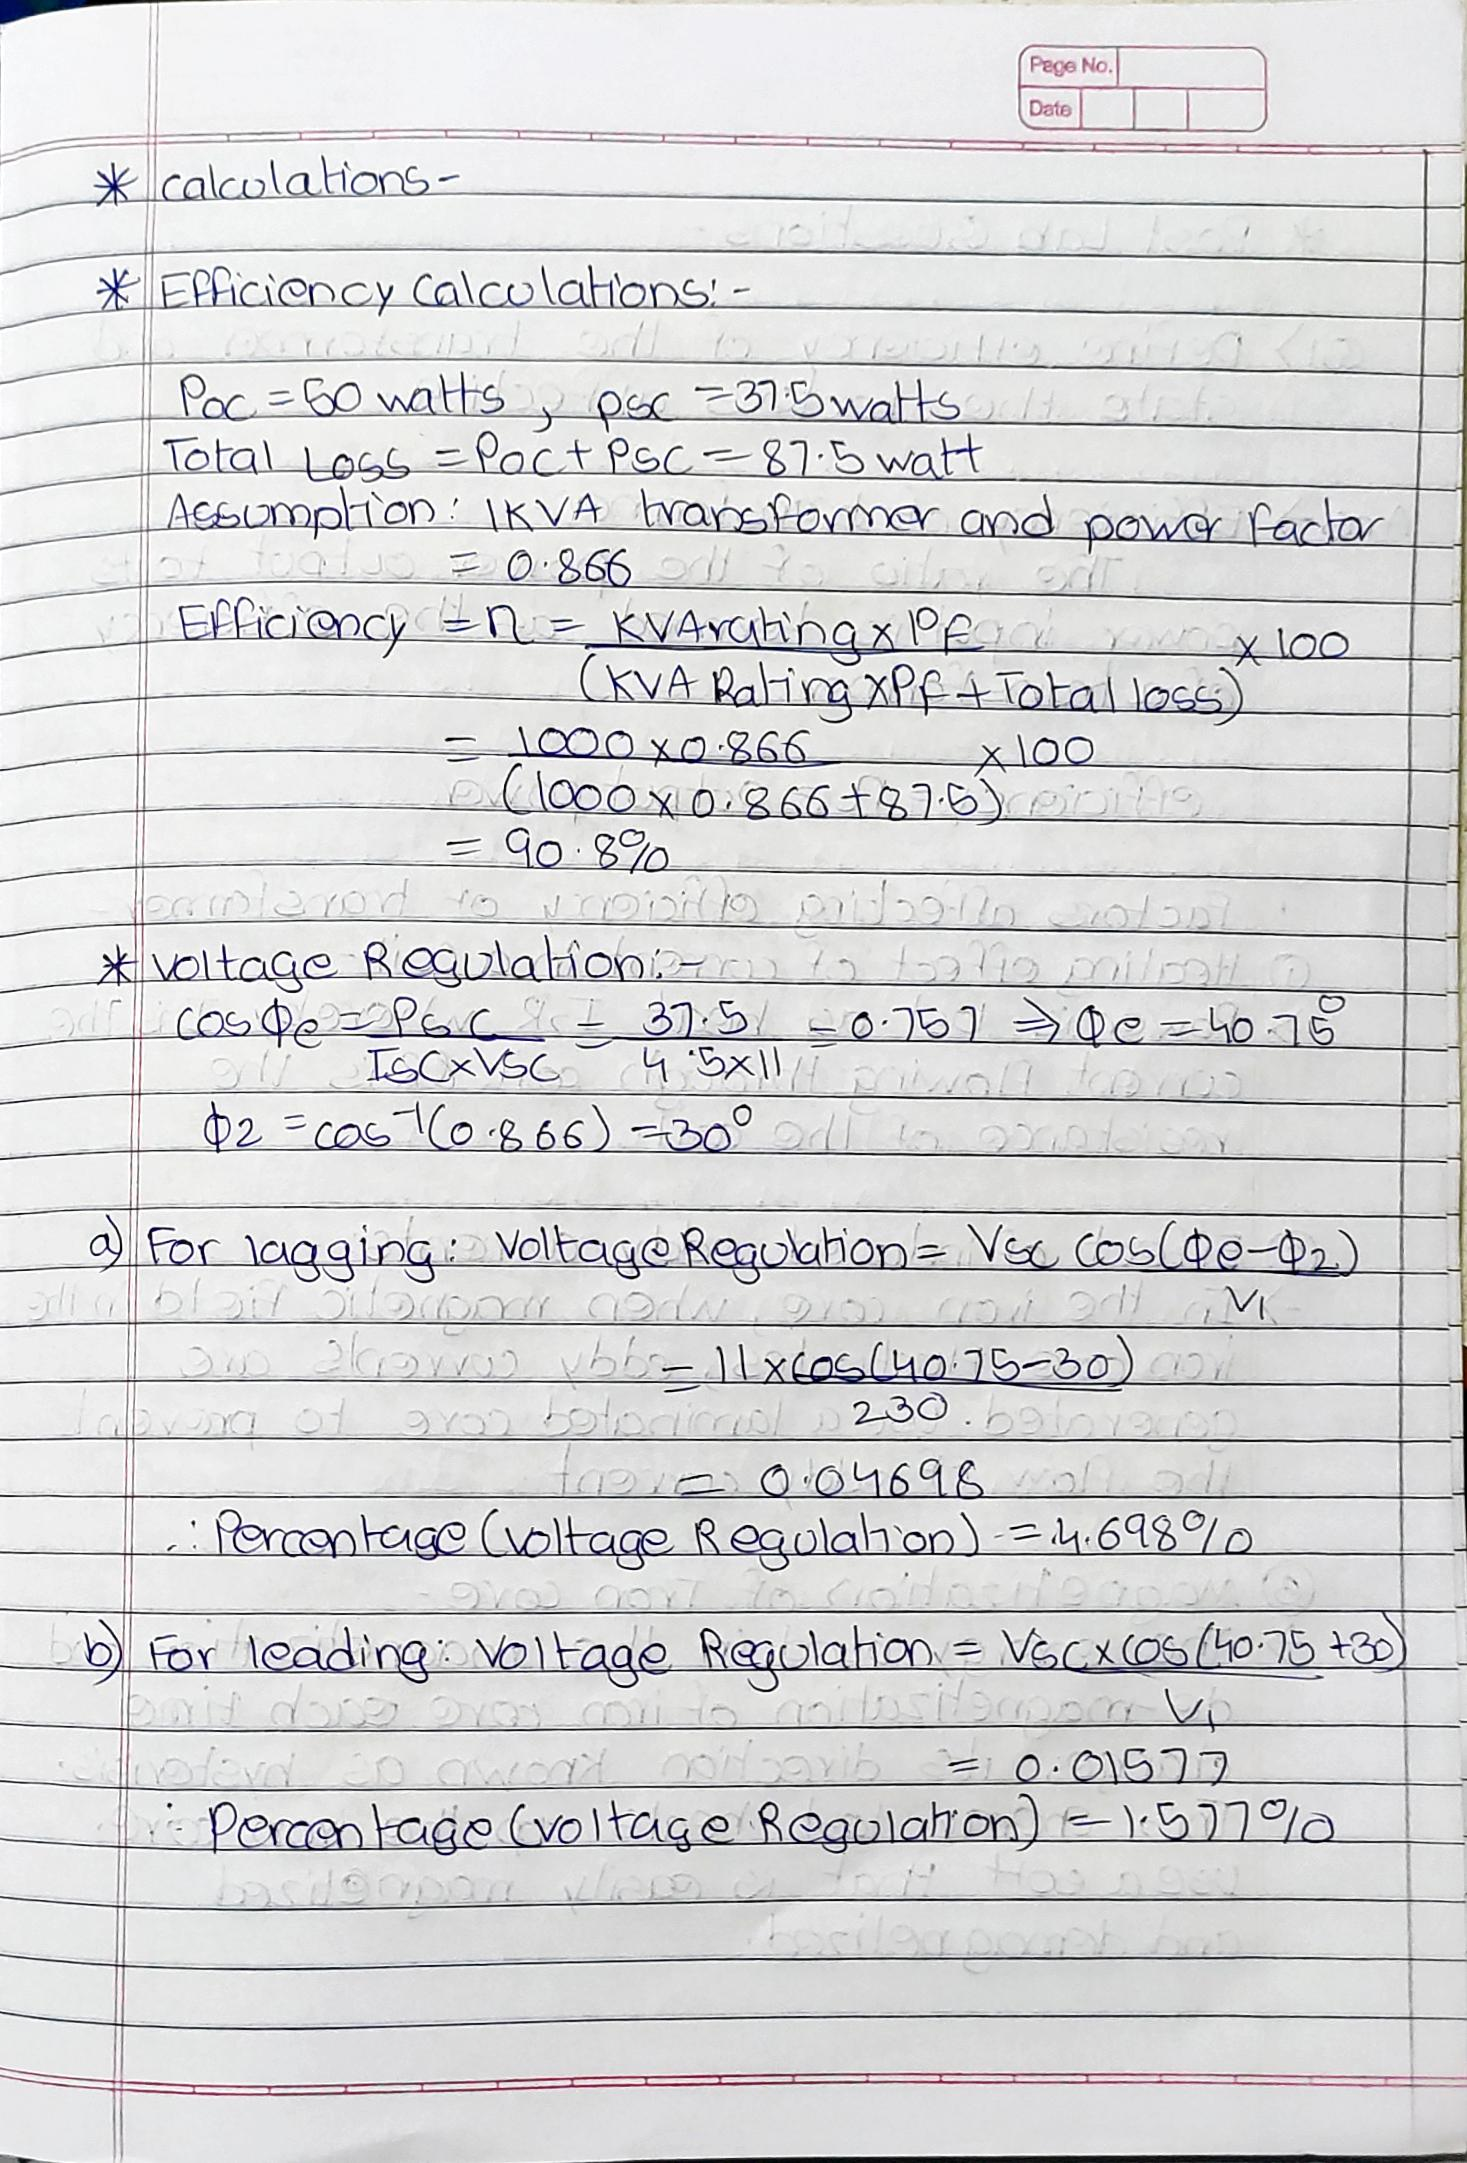 Page No.
Date
* calculations -
* Efficiency Calculations: -
Poc = 50 watts, psc = 37.5 watts
Total Loss = Poc + Psc = 87.5 watt
Assumption: 1KVA transformer and power factor
= 0.866
Efficiency = η = KVA rating x Pf x 100
(KVA Rating x Pf + Total loss)
= 1000 x 0.866 x 100
(1000 x 0.866 + 87.5)
= 90.8%
* Voltage Regulation: -
cos Φe = Psc = 37.5 = 0.757 ⇒ Φe = 40.75°
Isc x Vsc 4.5 x 11
Φ2 = cos⁻¹(0.866) = 30°
a) For lagging: Voltage Regulation = Vsc cos(Φe - Φ2)
V1
= 11 x cos(40.75 - 30)
230
= 0.04698
∴ Percentage (Voltage Regulation) = 4.698%
b) For leading: Voltage Regulation = Vsc x cos(40.75 + 30)
V1
= 0.01577
∴ Percentage (voltage Regulation) = 1.577%